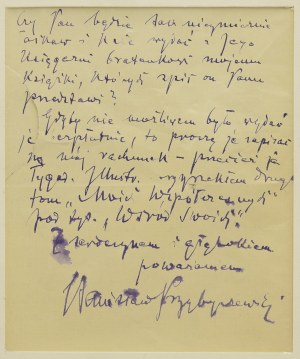 Czy Pan będzie tak niezmiernie
łaskaw i każe wydać z Jego
Księgarni bratankowi mojemu
Książki, których spis on Panu
przedstawi?
Gdyby nie możliwem było wydać
je bezpłatnie, to proszę je zapisać
na mój rachunek – przecież ja
Tygod. Illustr. drugi
tom „Moich Współczesnych"
pod tyt. „Wśród Swoich"
Z serdecznem i głębokiem
poważaniem
Stanisław Przybyszewski